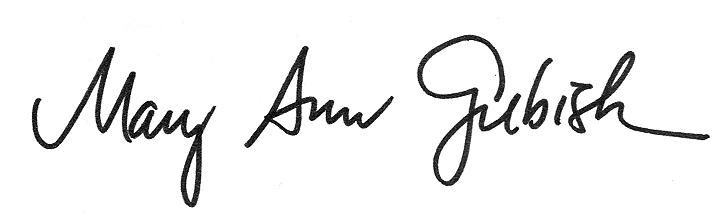 Mary Ann Gubish